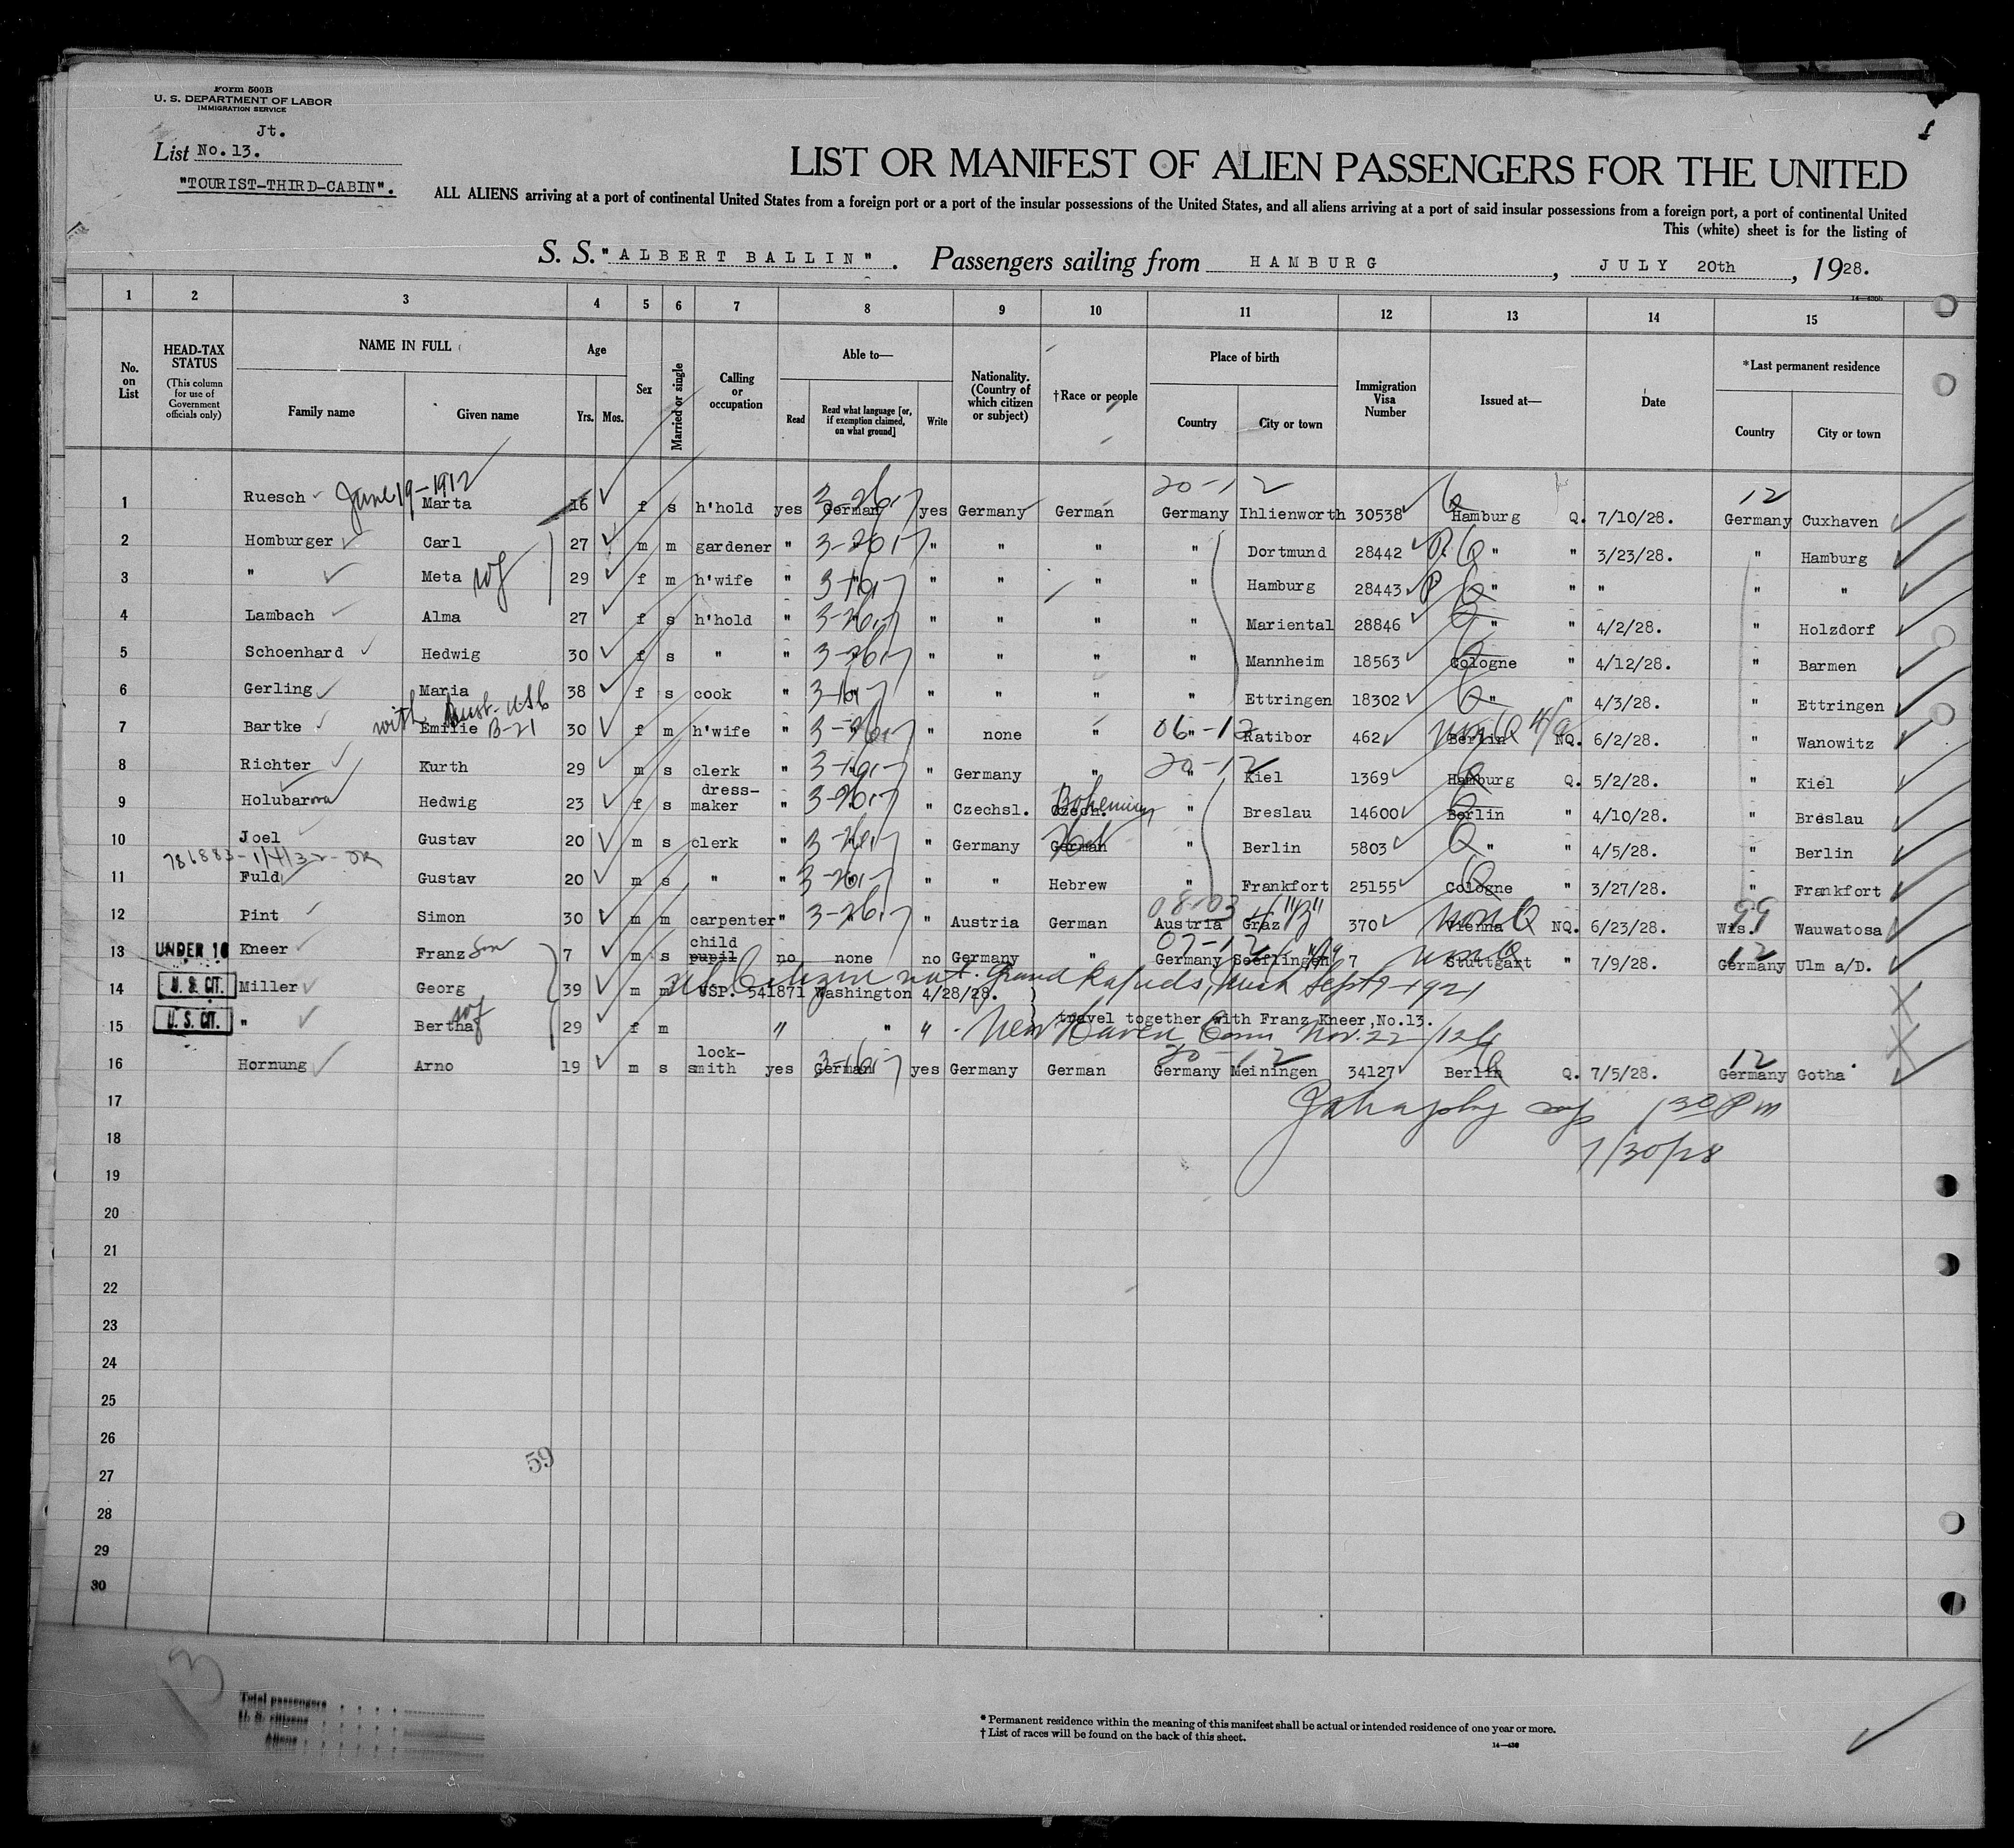 Form 500B
U. S. DEPARTMENT OF LABOR
IMMIGRATION SERVICE
Jt.
List No. 13.
"TOURIST-THIRD-CABIN".
LIST OR MANIFEST OF ALIEN PASSENGERS FOR THE UNITED
ALL ALIENS arriving at a port of continental United States from a foreign port or a port of the insular possessions of the United States, and all aliens arriving at a port of said insular possessions from a foreign port, a port of continental United
This (white) sheet is for the listing of
S. S. "ALBERT BALLIN". Passengers sailing from HAMBURG, JULY 20th, 1928.
1 2 3 4 5 6 7 8 9 10 11 12 13 14 15
No. on List
HEAD-TAX STATUS (This column for use of Government officials only)
NAME IN FULL Family name Given name
Age Yrs. Mos.
Sex
Married or single
Calling or occupation
Able to— Read Read what language [or, if exemption claimed, on what ground] Write
Nationality. (Country of which citizen or subject)
†Race or people
Place of birth Country City or town
Immigration Visa Number
Issued at—
Date
*Last permanent residence Country City or town
June 19-1912 3-26-17 20-12 Q 12
1 Ruesch Marta 16 f s h'hold yes German yes Germany German Germany Ihlienworth 30538 Hamburg Q. 7/10/28. Germany Cuxhaven
2 Homburger Carl 27 m m gardener " " " " " " Dortmund 28442 " " 3/23/28. " Hamburg
3 " Meta wf 29 f m h'wife " " " " " " Hamburg 28443 " " " " "
4 Lambach Alma 27 f s h'hold " " " " " " Mariental 28846 " " 4/2/28. " Holzdorf
5 Schoenhard Hedwig 30 f s " " " " " " " Mannheim 18563 Cologne " 4/12/28. " Barmen
6 Gerling Maria 38 f s cook " " " " " " Ettringen 18302 " " 4/3/28. " Ettringen
with B-21 06-12 non Q
7 Bartke Emilie 30 f m h'wife " " " none " " Ratibor 462 Berlin NQ. 6/2/28. " Wanowitz
20-12
8 Richter Kurth 29 m s clerk " " " Germany " " Kiel 1369 Hamburg Q. 5/2/28. " Kiel
9 Holubarova Hedwig 23 f s dress-maker " " " Czechsl. Czech. Bohemian " Breslau 14600 Berlin " 4/10/28. " Breslau
10 Joel Gustav 20 m s clerk " " " Germany German " Berlin 5803 " " 4/5/28. " Berlin
786883-1/4/32-OK
11 Fuld Gustav 20 m s " " " " " Hebrew " Frankfort 25155 Cologne " 3/27/28. " Frankfort
08-03 non Q 99
12 Pint Simon 30 m m carpenter " " " Austria German Austria Graz 370 Vienna NQ. 6/23/28. Wis. Wauwatosa
07-12 non Q 12
13 UNDER 16 Kneer Franz son 7 m s child pupil no none no Germany " Germany Soeflingen 7 Stuttgart " 7/9/28. Germany Ulm a/D.
US Citizen nat. Grand Rapids, Mich Sept 9-1921
14 U. S. CIT. Miller Georg 39 m m USP. 541871 Washington 4/28/28.
travel together with Franz Kneer, No.13.
15 U. S. CIT. " Bertha wf 29 f m " " " New Haven Conn Nov. 22
20-12 12
16 Hornung Arno 19 m s lock-smith yes German yes Germany German Germany Meiningen 34127 Berlin Q. 7/5/28. Germany Gotha
17 1 30 Pm
18 7/30/28
19
20
21
22
23
24
25
26
27
28
29
30
59
13
Total passengers
U. S. citizens
Aliens
* Permanent residence within the meaning of this manifest shall be actual or intended residence of one year or more.
† List of races will be found on the back of this sheet.